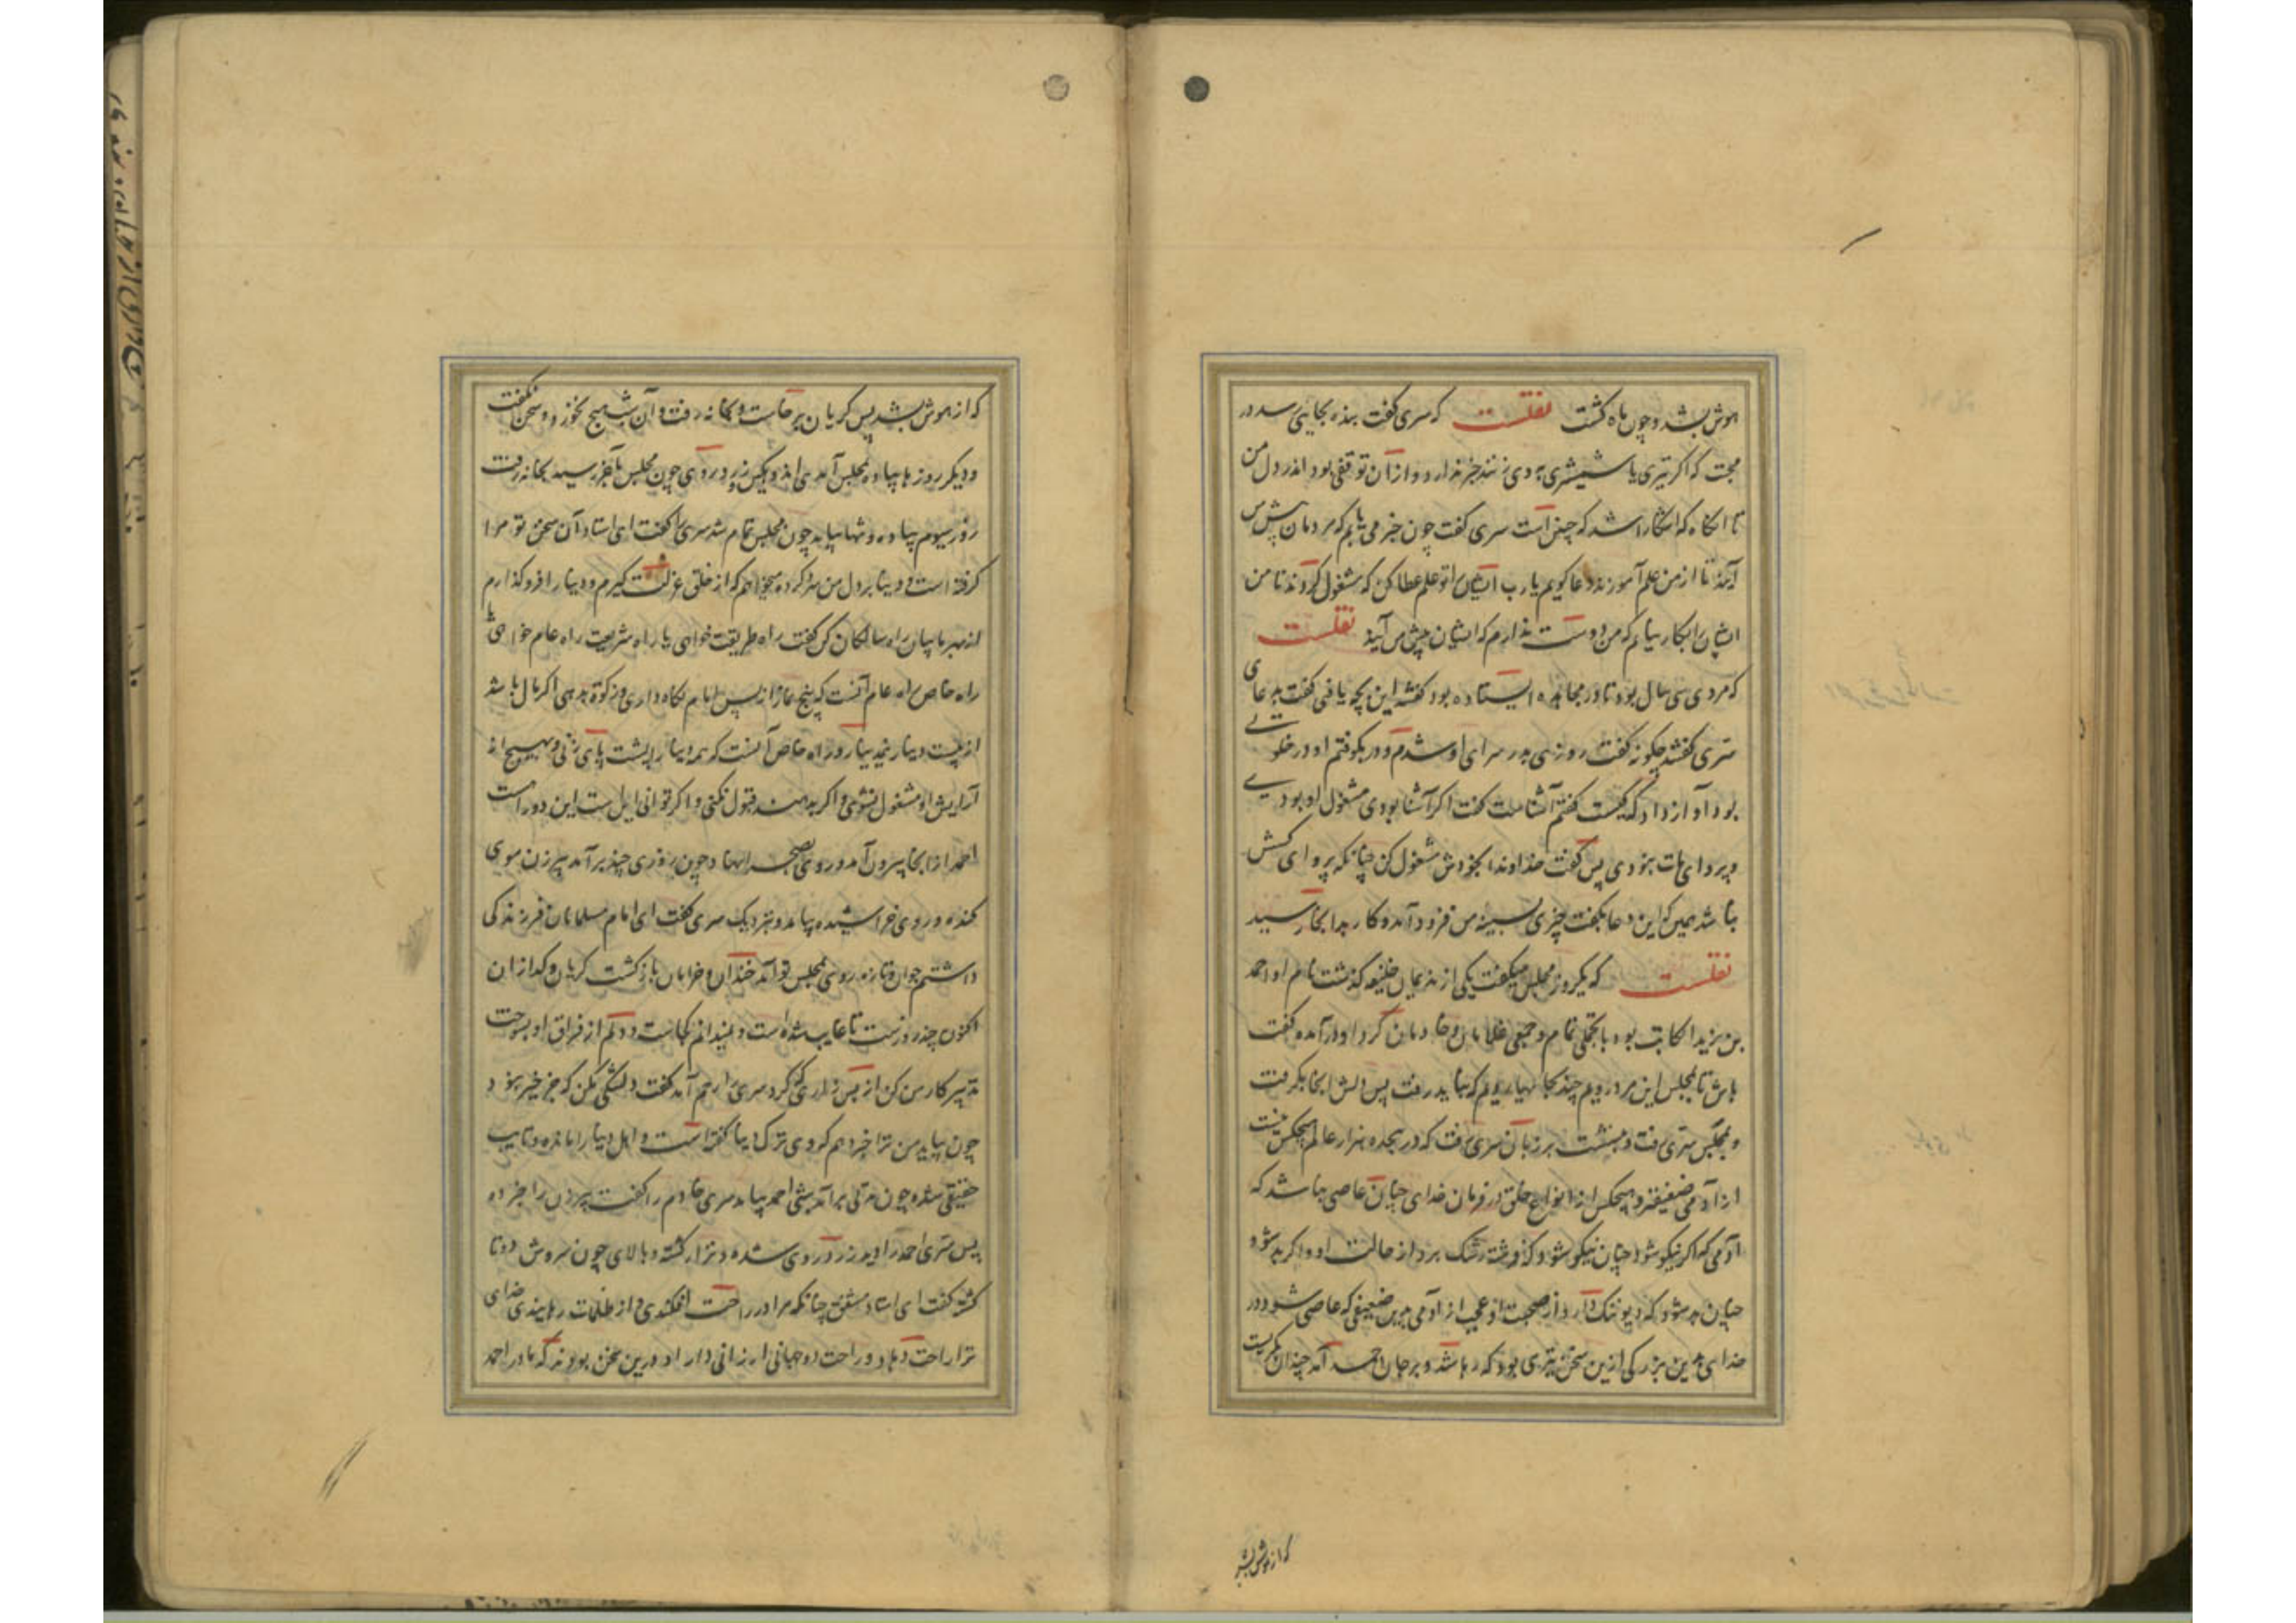 هوش بشد و چون ماه گشت نقلست که سری گفت بنده بجایی رسد در
محبت که اگر تیری یا شمشیری بر وی زنند خبر ندارد و ازان توقفی بود اندر دل من
تا انگاه که اشکارا شد که چنین است سری گفت چون خبر می یابم که مردمان پیش من
آیند تا از من علم آموزند دعا گویم یا رب ایشان را تو علم عطا کن که مشغول گرداند تا من
ایشان را بکار نیایم که من دوست ندارم که ایشان پیش من آیند نقلست
که مردی سی سال بود تا در مجاهده ایستاده بود گفتند این بچه یافتی گفت بدعای
سری گفتند چگونه گفت روزی بدر سرای او شدم و در بکوفتم او در خلوتی
بود آواز داد که کیست گفتم آشناست گفت اگر آشنا بودی مشغول او بودیی
و پروای مات نبودی پس گفت خداوندا بخودش مشغول کن چنانکه پروای کسش
نباشد همین که این دعا بگفت چیزی بسینه من فرود آمد و کار بدانجا رسید
نقلست که یکروز مجلس میگفت یکی از ندیمان خلیفه گذشت نام او احمد
بن یزید الکاتب بود با تجملی تمام و جمعی غلامان و خادمان گرد او درآمده گفت
باش تا بمجلس این مرد رویم چند بجاهایی رویم که نباید رفت پس دلش انجا بگرفت
و بمجلس سری رفت و بنشست بر زبان سری رفت که در هجده هزار عالم هیچکس نیست
از آدمی ضعیفتر و هیچکس از انواع خلق در فرمان خدای چنان عاصی نباشد که
آدمی که اگر نیکو شود چنان نیکو شود که فرشته رشک برد از حالت او و اگر بد شود
چنان بد شود که دیو ننگ دارد از صحبت او عجب از آدمی بدین ضعیفی که عاصی شود در
خدای بدین بزرگی ازین سخن تیری بود که رها شد و بر جان احمد آمد چندان بگریست
که از هوش بشد
که از هوش بشد پس گریان برخاست و بخانه رفت و آن شب هیچ نخورد و سخن نگفت
و دیگر روز پیاده بمجلس آمد اندوهگین زرد روی چون مجلس باخر رسید بخانه رفت
روز سیوم پیاده و تنها بیامد چون مجلس تمام شد سری را گفت ای استاد آن سخن تو مرا
گرفته است و دنیا بر دل من سرد کرده میخواهم که از خلق عزلت گیرم و دنیا را فرو گذارم
از بهر ما بیان راه سالکان کن گفت راه طریقت خواهی یا راه شریعت راه عام خواهی یا
راه خاص راه عام آنست که پنج نماز از پس امام نگاه داری و زکوة بدهی اگر مال باشد
از بیست دینار نیم دینار و راه خاص آنست که همه دنیا را پشت پای زنی و بهیچ از
آرایش او مشغول نشوی و اگر بدهند قبول نکنی و اگر توانی اینست این دو راه است
احمد از انجا بیرون آمد و روی بصحرا نهاد چون روزی چند برآمد پیرزن موی
کنده و روی خراشیده بیامد و نزدیک سری گفت ای امام مسلمانان فرزندکی
داشتم جوان و تازه روی بمجلس تو آمد خندان و خرامان بازگشت گریان و گدازان
اکنون چند روزست تا غایب شده است و نمیدانم کجاست و دلم از فراق او بسوخت
تدبیر کار من کن از بس زاری که کرد سری را رحم آمد گفت دلتنگی مکن که جز خیر نبود
چون بیاید من ترا خبر دهم که وی ترک دنیا گفته است و اهل دنیا را مانده و تایب
حقیقی شده چون مدتی برآمد شبی احمد بیامد سری خادم را گفت پیرزن را خبر ده
پس سری احمد را دید زرد روی شده و نزار گشته و بالای چون سروش دوتا
گشته گفت ای استاد مشفق چنانکه مرا در راحت افکندی و از ظلمات رهانیدی خدای
ترا راحت دهاد و راحت دو جهانی ارزانی داراد درین سخن بودند که مادر احمد